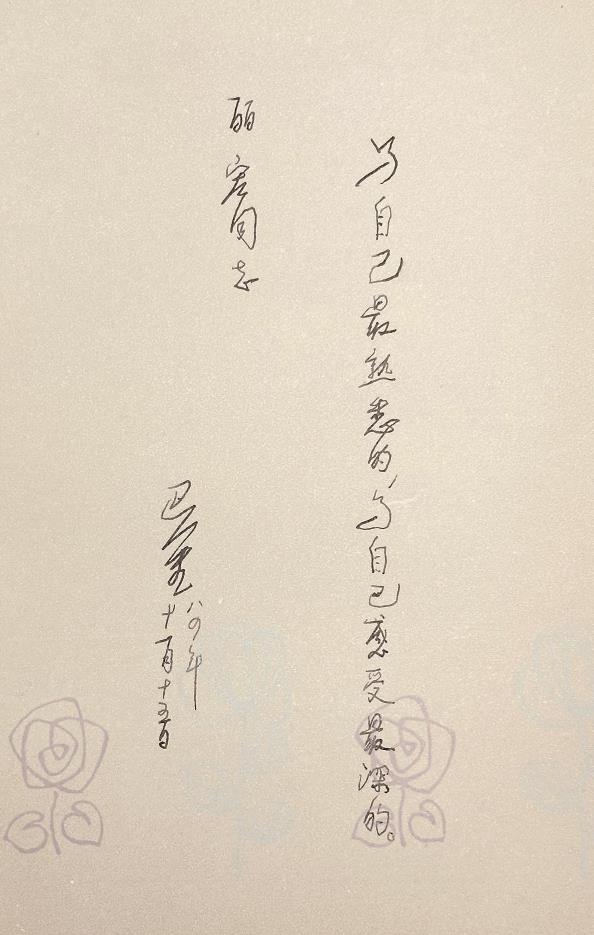 写自己最熟悉的，写自己感受最深的。
丽宏同志
巴金
八四年
十一月十五日